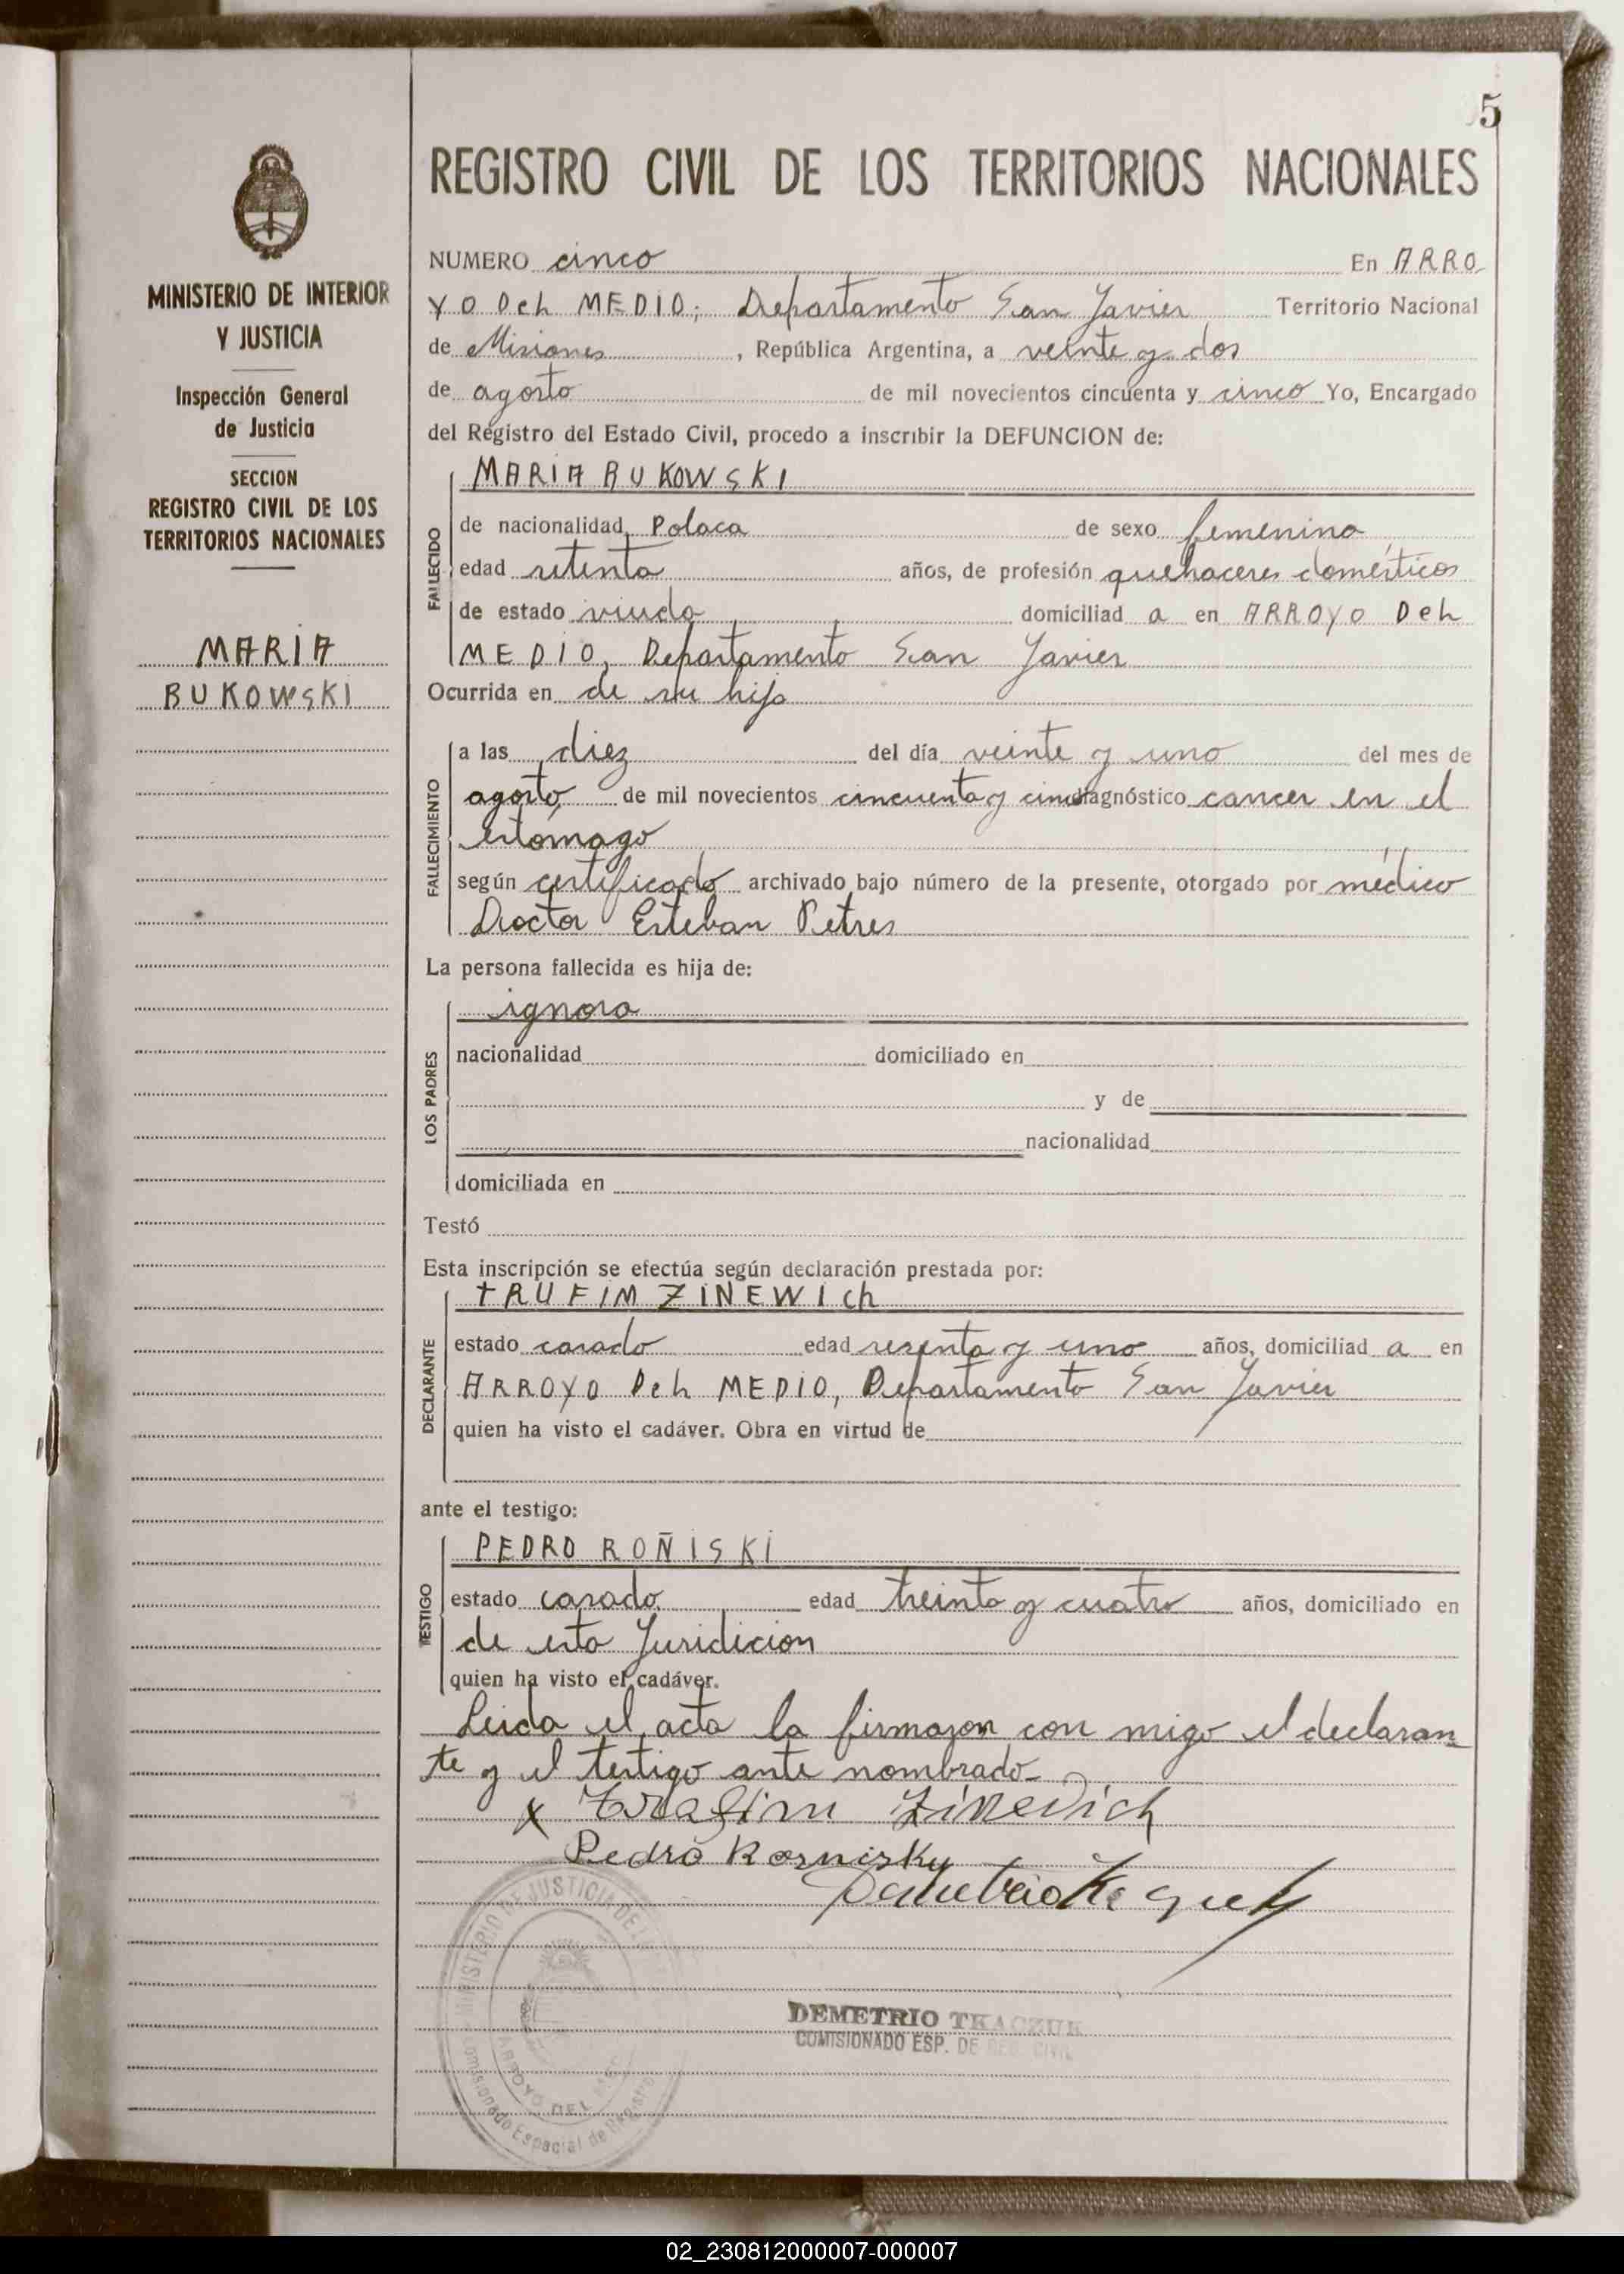 5
REGISTRO CIVIL DE LOS TERRITORIOS NACIONALES
MINISTERIO DE INTERIOR
Y JUSTICIA
Inspección General
de Justicia
SECCION
REGISTRO CIVIL DE LOS
TERRITORIOS NACIONALES
MARIA
BUKOWSKI
NUMERO cinco En ARRO
YO DEL MEDIO; Departamento San Javier Territorio Nacional
de Misiones, República Argentina, a veinte y dos
de agosto de mil novecientos cincuenta y cinco Yo, Encargado
del Registro del Estado Civil, procedo a inscribir la DEFUNCION de:
MARIA BUKOWSKI
FALLECIDO
de nacionalidad Polaca de sexo femenino
edad setenta años, de profesión quehaceres domésticos
de estado viuda domiciliad a en ARROYO DEL
MEDIO, Departamento San Javier
Ocurrida en de su hijo
FALLECIMIENTO
a las diez del día veinte y uno del mes de
agosto de mil novecientos cincuenta y cinco diagnóstico cancer en el
estomago
según certificado archivado bajo número de la presente, otorgado por médico
Doctor Esteban Petres
La persona fallecida es hija de:
LOS PADRES
ignora
nacionalidad domiciliado en
y de
nacionalidad
domiciliada en
Testó
Esta inscripción se efectúa según declaración prestada por:
DECLARANTE
TRUFIM ZINEWICH
estado casado edad sesenta y uno años, domiciliad a en
ARROYO DEL MEDIO, Departamento San Javier
quien ha visto el cadáver. Obra en virtud de
ante el testigo:
TESTIGO
PEDRO ROÑISKI
estado casado edad treinta y cuatro años, domiciliado en
de esta Juridicion
quien ha visto el cadáver.
Leida el acta la firmaron con migo el declaran
te y el testigo ante nombrado
x Trafim Zinevich
Pedro Rosnisky
MINISTERIO DE JUSTICIA DE
ARROYO DEL
Comisionado Especial de Registro
DEMETRIO TKACZUK
COMISIONADO ESP. DE REG. CIVIL
02_230812000007-000007